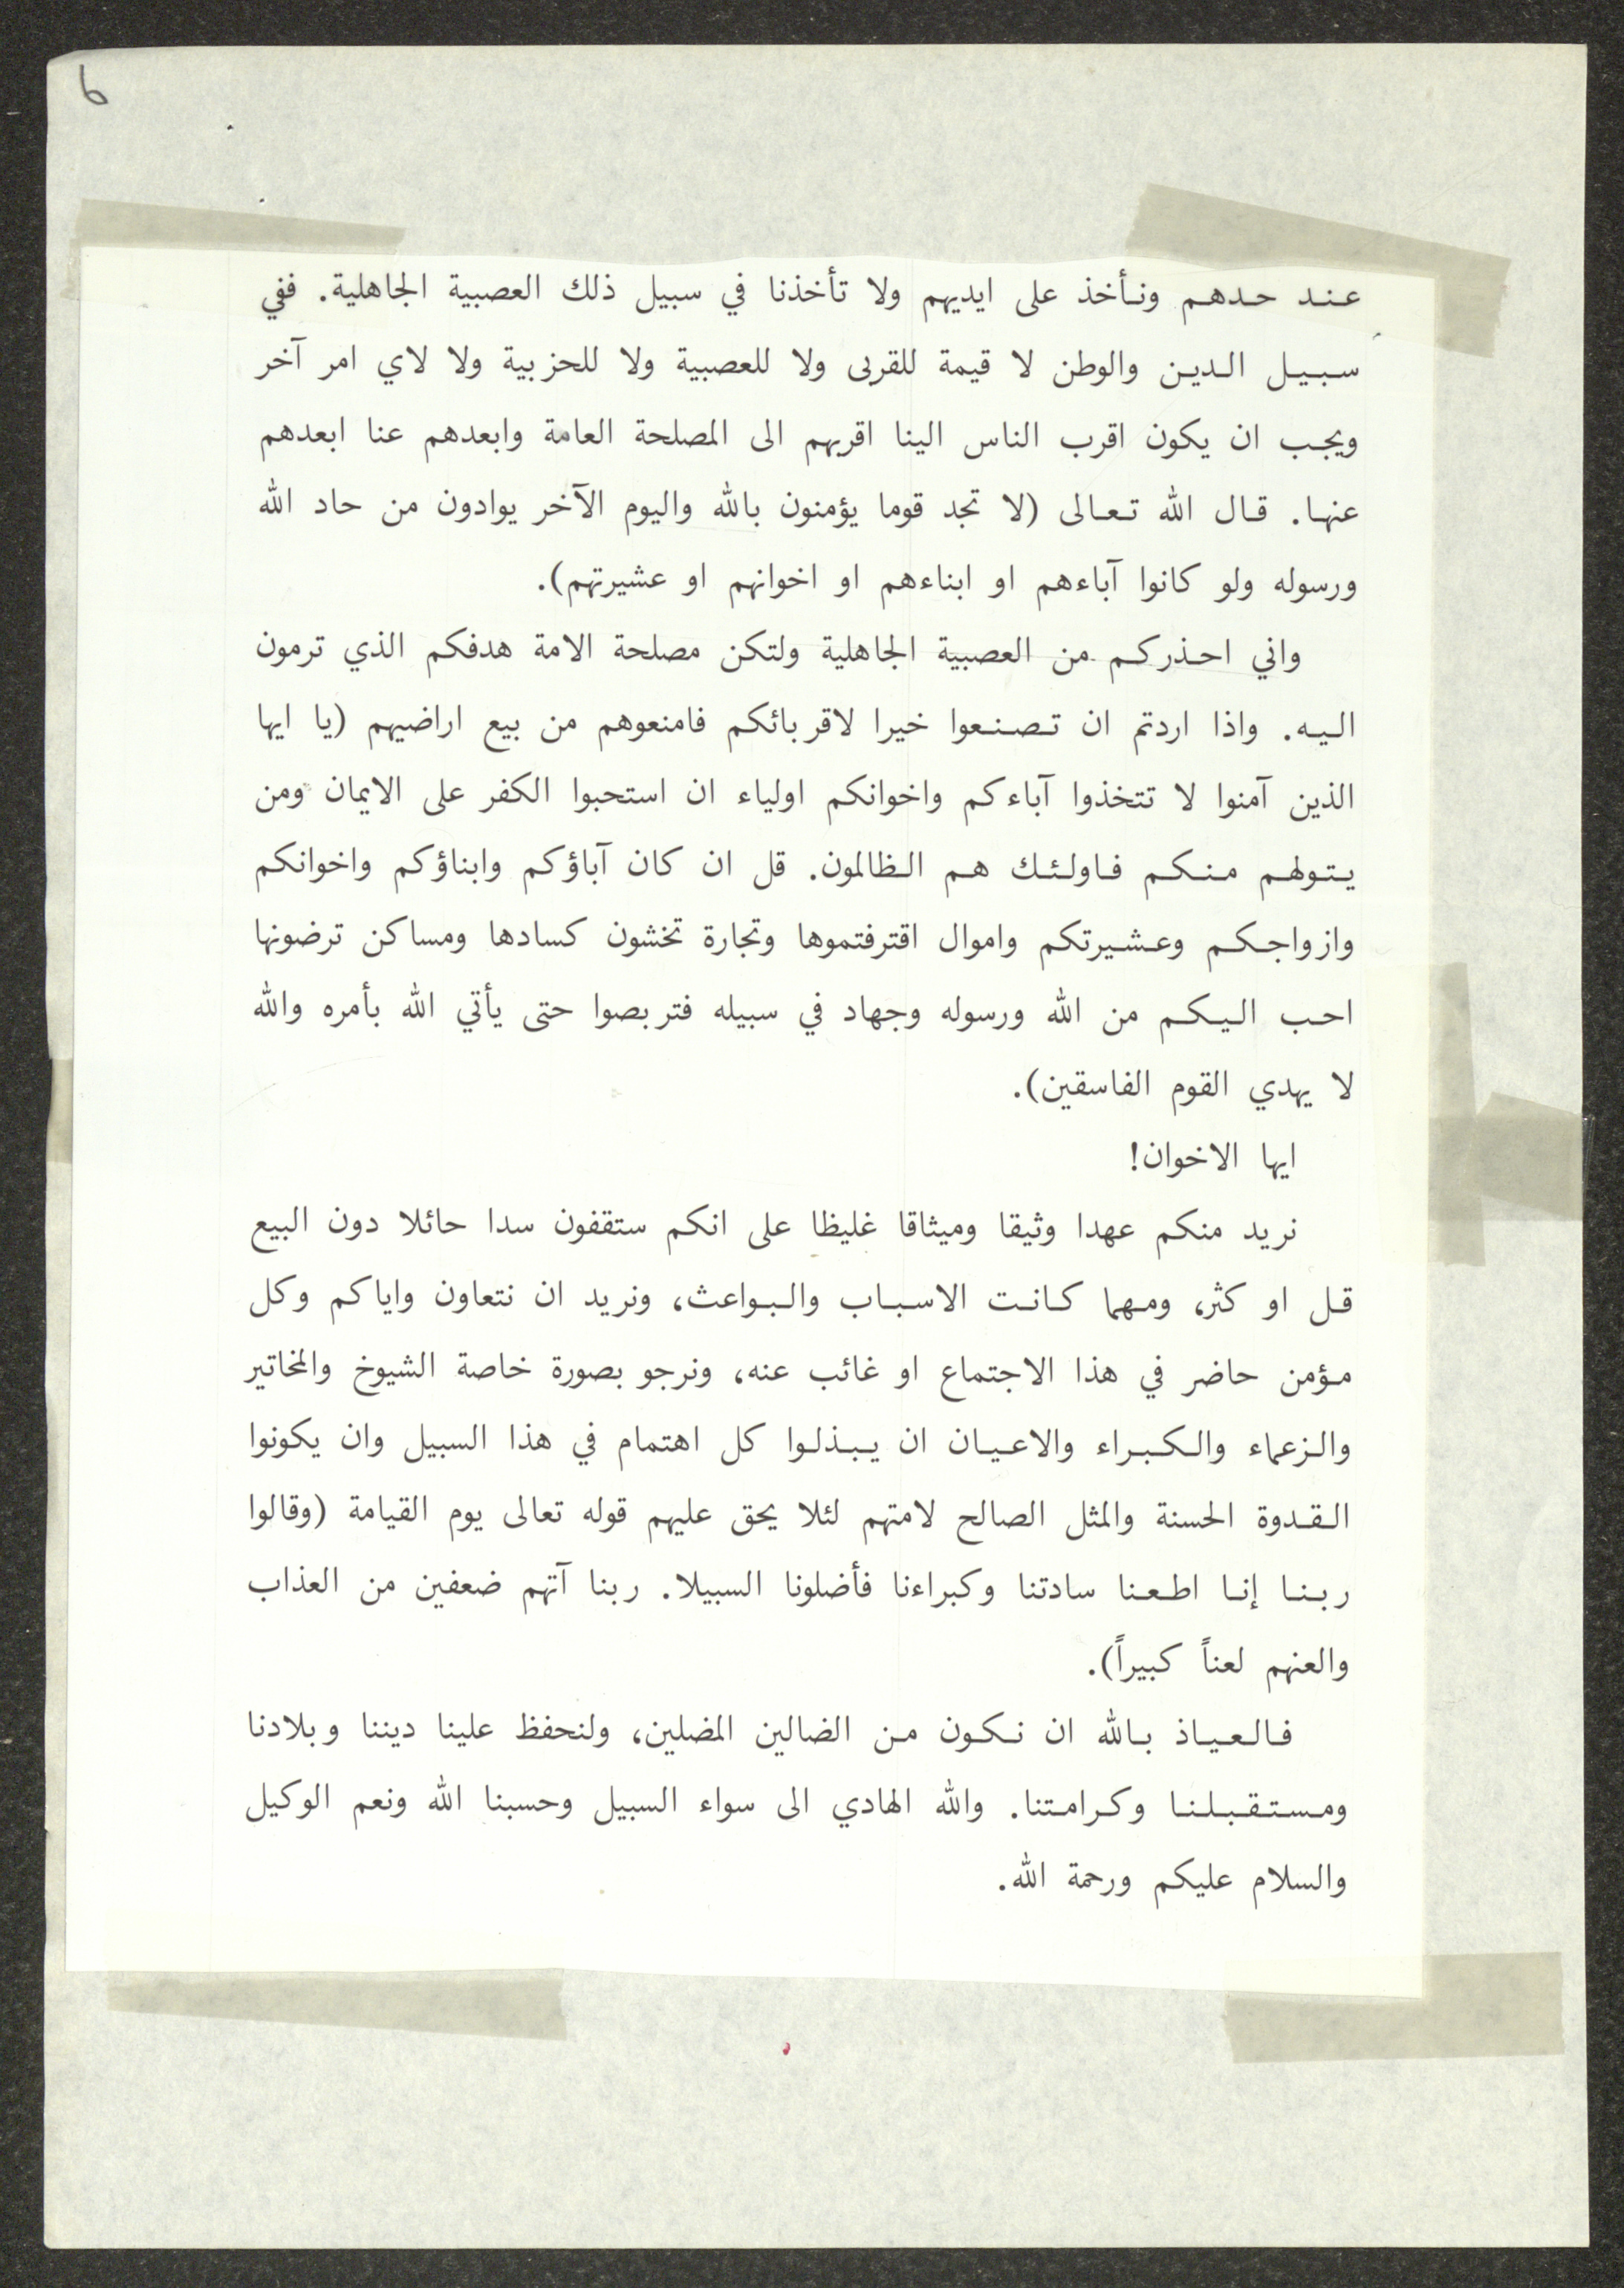 6
عند حدهم ونأخذ على ايديهم ولا تأخذنا في سبيل ذلك العصبية الجاهلية. ففي
سبيل الدين والوطن لا قيمة للقربى ولا للعصبية ولا للحزبية ولا لاي امر آخر
ويجب ان يكون اقرب الناس الينا اقربهم الى المصلحة العامة وابعدهم عنا ابعدهم
عنها. قال الله تعالى (لا تجد قوما يؤمنون بالله واليوم الآخر يوادون من حاد الله
ورسوله ولو كانوا آباءهم او ابناءهم او اخوانهم او عشيرتهم).
واني احذركم من العصبية الجاهلية ولتكن مصلحة الامة هدفكم الذي ترمون
اليه. واذا اردتم ان تصنعوا خيرا لاقربائكم فامنعوهم من بيع اراضيهم (يا ايها
الذين آمنوا لا تتخذوا آباءكم واخوانكم اولياء ان استحبوا الكفر على الايمان ومن
يتولهم منكم فاولئك هم الظالمون. قل ان كان آباؤكم وابناؤكم واخوانكم
وازواجكم وعشيرتكم واموال اقترفتموها وتجارة تخشون كسادها ومساكن ترضونها
احب اليكم من الله ورسوله وجهاد في سبيله فتربصوا حتى يأتي الله بأمره والله
لا يهدي القوم الفاسقين).
ايها الاخوان!
نريد منكم عهدا وثيقا وميثاقا غليظا على انكم ستقفون سدا حائلا دون البيع
قل او كثر، ومهما كانت الاسباب والبواعث، ونريد ان نتعاون واياكم وكل
مؤمن حاضر في هذا الاجتماع او غائب عنه، ونرجو بصورة خاصة الشيوخ والمخاتير
والزعماء والكبراء والاعيان ان يبذلوا كل اهتمام في هذا السبيل وان يكونوا
القدوة الحسنة والمثل الصالح لامتهم لئلا يحق عليهم قوله تعالى يوم القيامة (وقالوا
ربنا إنا اطعنا سادتنا وكبراءنا فأضلونا السبيلا. ربنا آتهم ضعفين من العذاب
والعنهم لعناً كبيراً).
فالعياذ بالله ان نكون من الضالين المضلين، ولنحفظ علينا ديننا وبلادنا
ومستقبلنا وكرامتنا. والله الهادي الى سواء السبيل وحسبنا الله ونعم الوكيل
والسلام عليكم ورحمة الله.